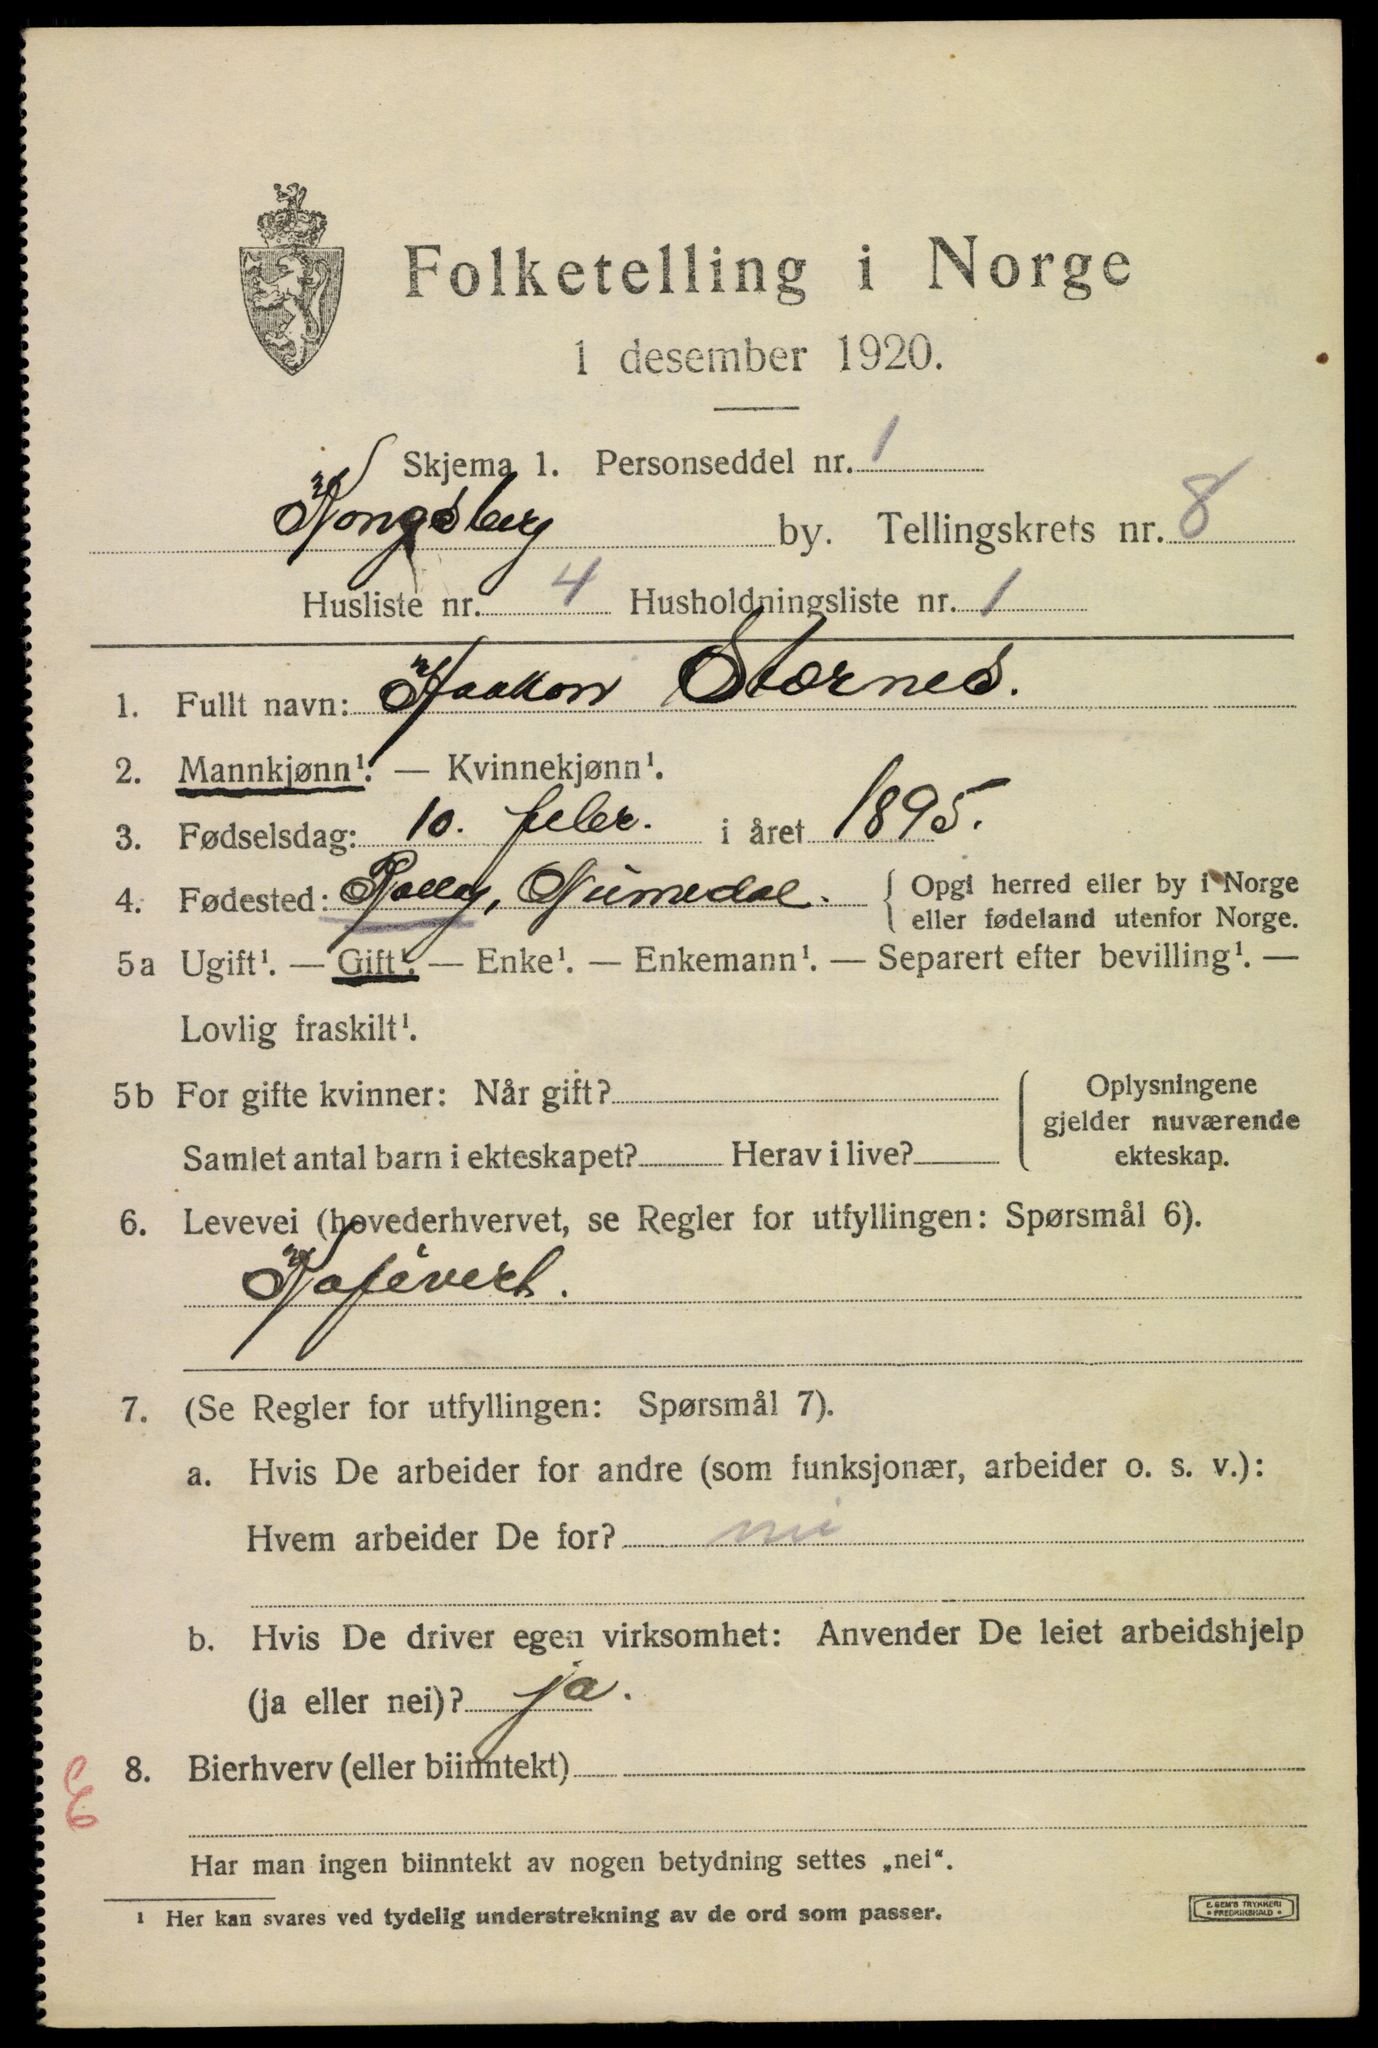 Folketelling i Norge
1 desember 1920.
Skjema 1. Personseddel nr. 1
Kongsberg by. Tellingskrets nr. 8
Husliste nr. 4 Husholdningsliste nr. 1
1. Fullt navn: Haakon Stærnes.
2. Mannkjønn¹. — Kvinnekjønn¹.
3. Fødselsdag: 10. febr. i året 1895.
4. Fødested: Rollag, Numedal. { Opgi herred eller by i Norge
eller fødeland utenfor Norge.
5a Ugift¹. — Gift¹. — Enke¹. — Enkemann¹. — Separert efter bevilling¹. —
Lovlig fraskilt¹.
5b For gifte kvinner: Når gift?
Oplysningene
gjelder nuværende
ekteskap.
Samlet antal barn i ekteskapet? Herav i live?
6. Levevei (hovederhvervet, se Regler for utfyllingen: Spørsmål 6).
Kafévert.
7. (Se Regler for utfyllingen: Spørsmål 7).
a. Hvis De arbeider for andre (som funksjonær, arbeider o. s. v.):
Hvem arbeider De for?
b. Hvis De driver egen virksomhet: Anvender De leiet arbeidshjelp
(ja eller nei)? ja.
8. Bierhverv (eller biinntekt) —
Har man ingen biinntekt av nogen betydning settes „nei“.
¹ Her kan svares ved tydelig understrekning av de ord som passer.
E. SEM'S TRYKKERI
• FREDRIKSHALD •